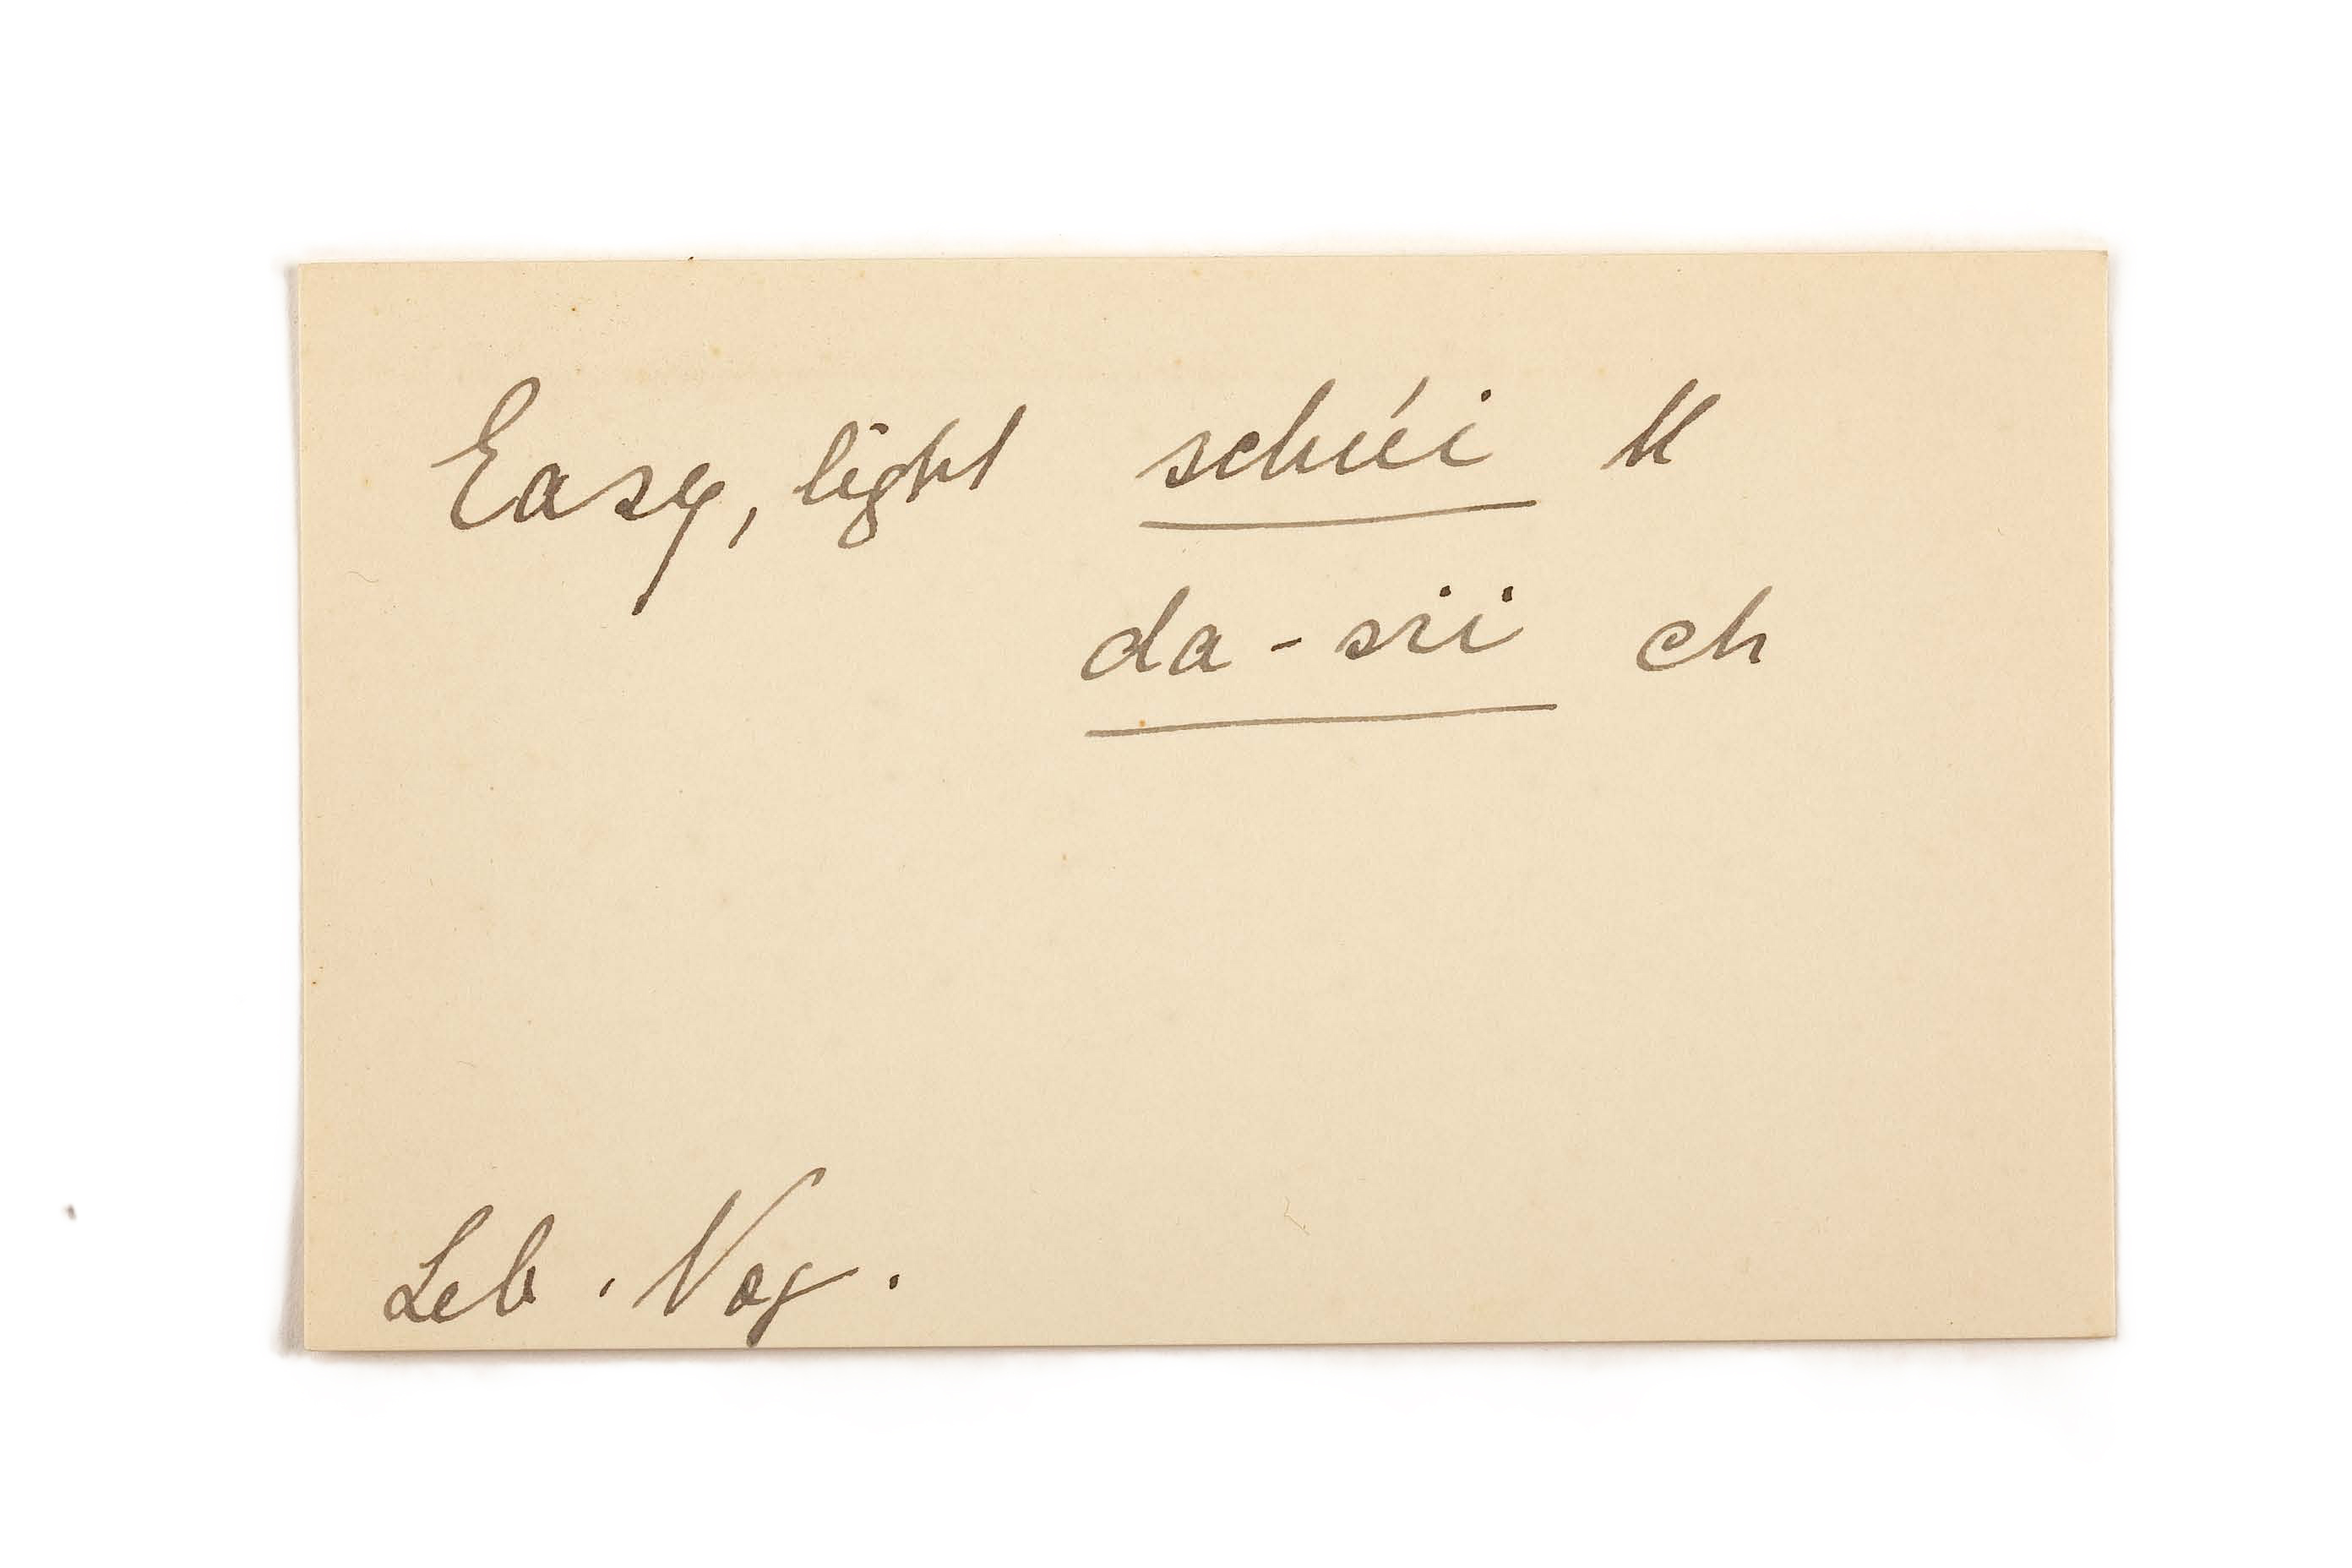 Easy, light schúi K
da-sii ch
Leb. Nog.